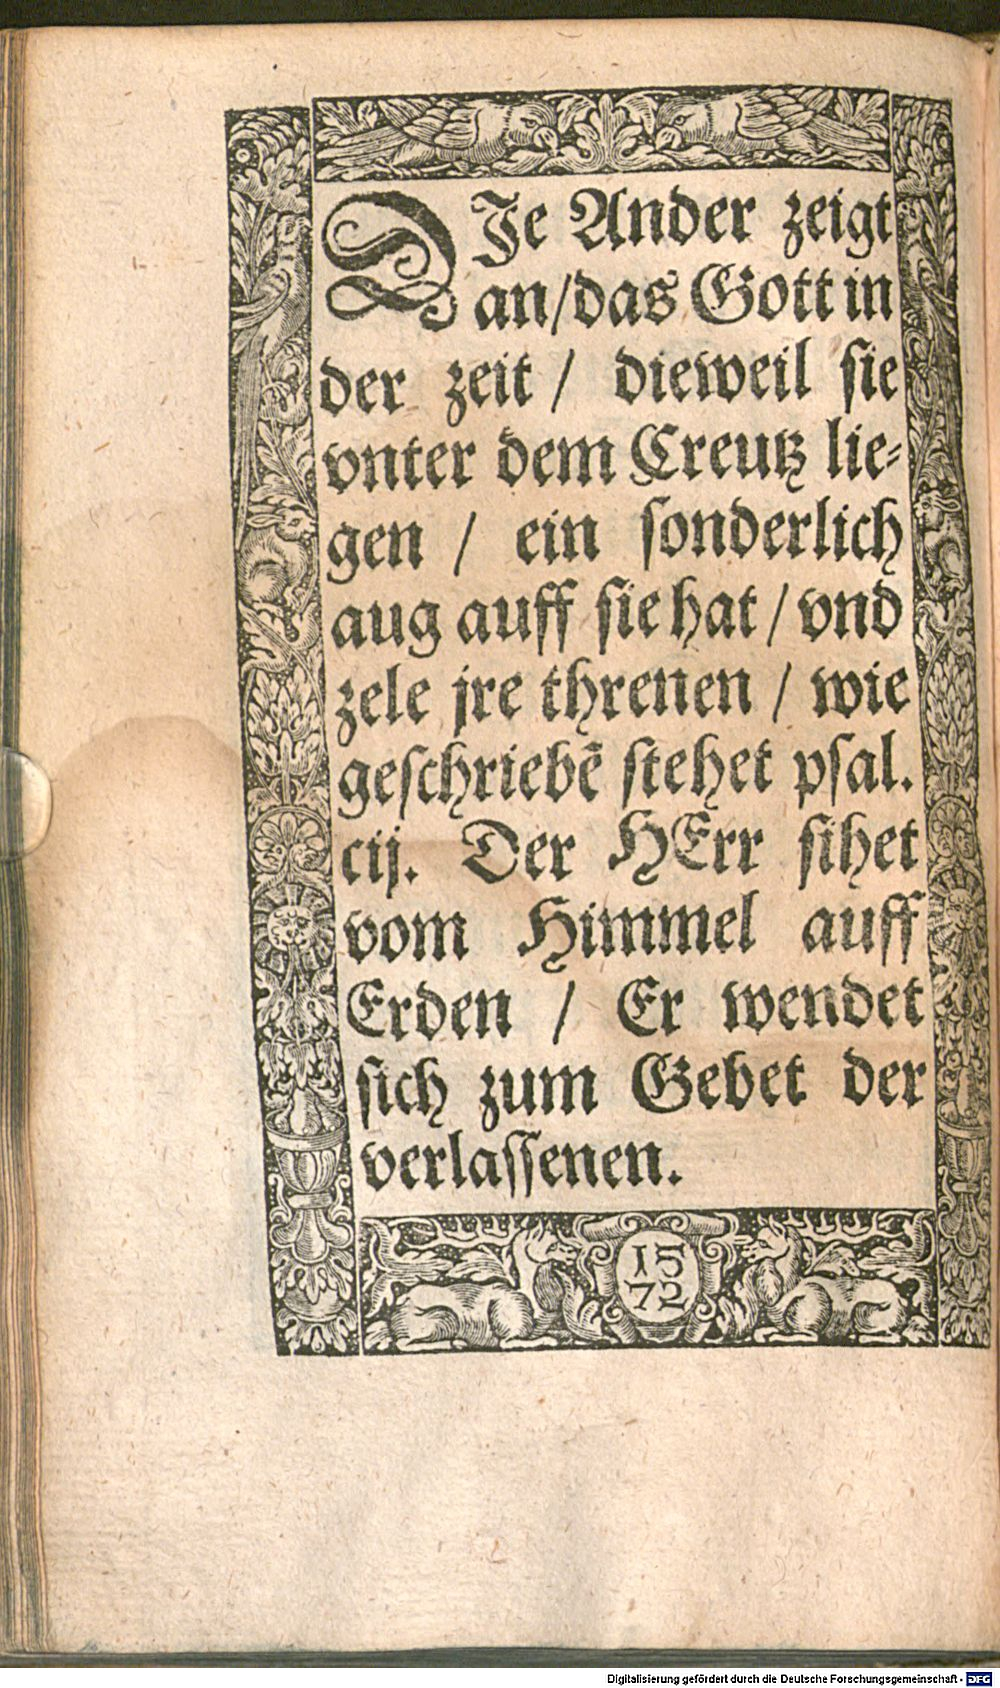 DJe Ander zeigt
an/das Gott in
der zeit / dieweil sie
vnter dem Creutz lie⸗
gen / ein sonderlich
aug auff sie hat / vnd
zele jre threnen / wie
geschriebē stehet psal.
cij. Der HErr sihet
vom Himmel auff
Erden / Er wendet
sich zum Gebet der
verlassenen.
15
72
Digitalisierung gefördert durch die Deutsche Forschungsgemeinschaft - DFG